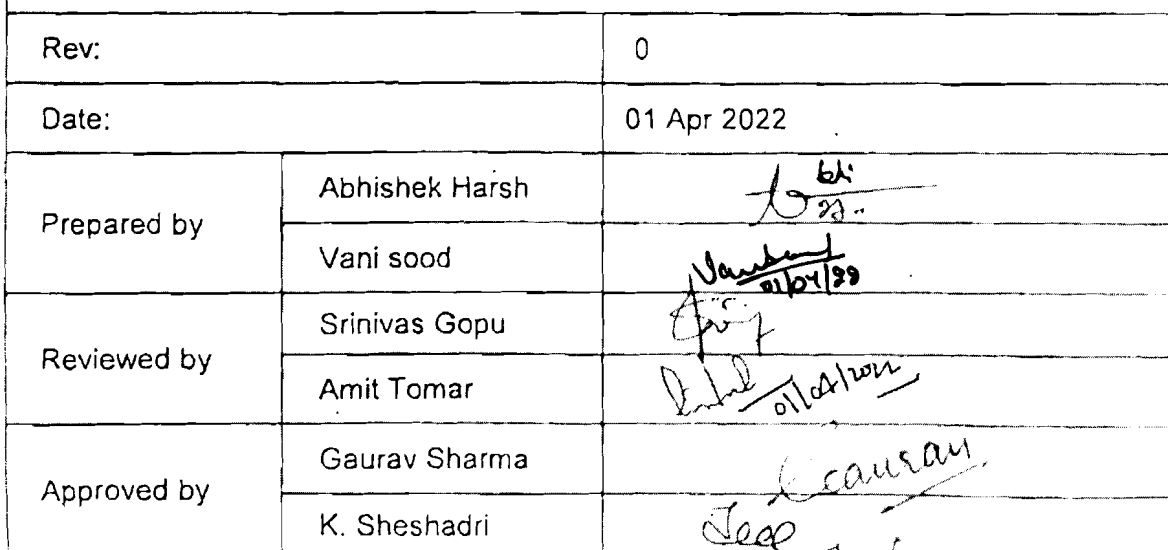 Rev: 0
Date: 01 Apr 2022
Prepared by
Abhishek Harsh
Vani sood
01/04/22
Reviewed by
Srinivas Gopu
Amit Tomar
01/04/2022
Approved by
Gaurav Sharma
Gaurav
K. Sheshadri